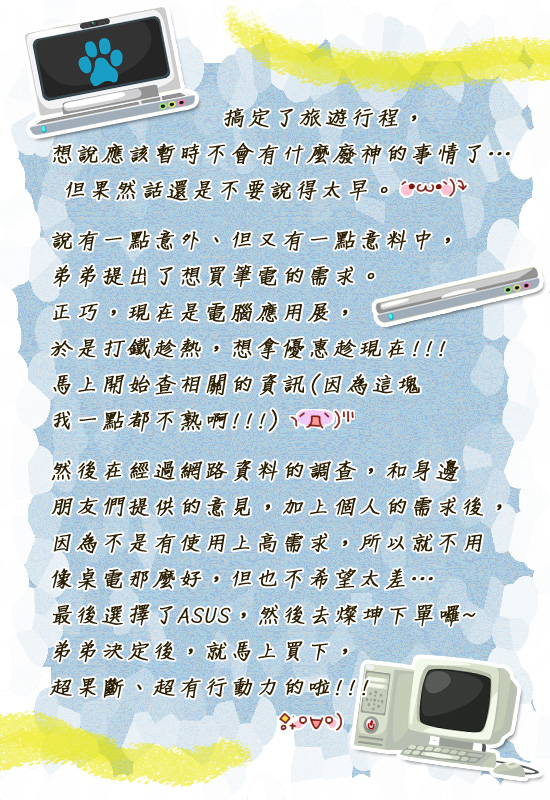 搞定了旅遊行程，
想說應該暫時不會有什麼廢神的事情了…
但果然話還是不要說得太早。
說有一點意外、但又有一點意料中，
弟弟提出了想買筆電的需求。
正巧，現在是電腦應用展，
於是打鐵趁熱，想拿優惠趁現在!!!
馬上開始查相關的資訊(因為這塊
我一點都不熟啊!!!)
然後在經過網路資料的調查，和身邊
朋友們提供的意見，加上個人的需求後，
因為不是有使用上高需求，所以就不用
像桌電那麼好，但也不希望太差…
最後選擇了ASUS，然後去燦坤下單囉~
弟弟決定後，就馬上買下，
超果斷、超有行動力的啦!!!